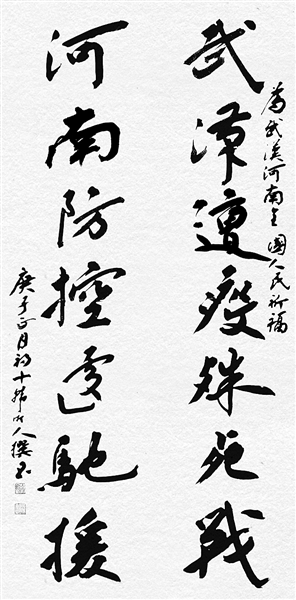 為武漢河南全國人民祈福
武漢遭疫殊死戰
河南防控遽馳援
庚子正月初十 人撰